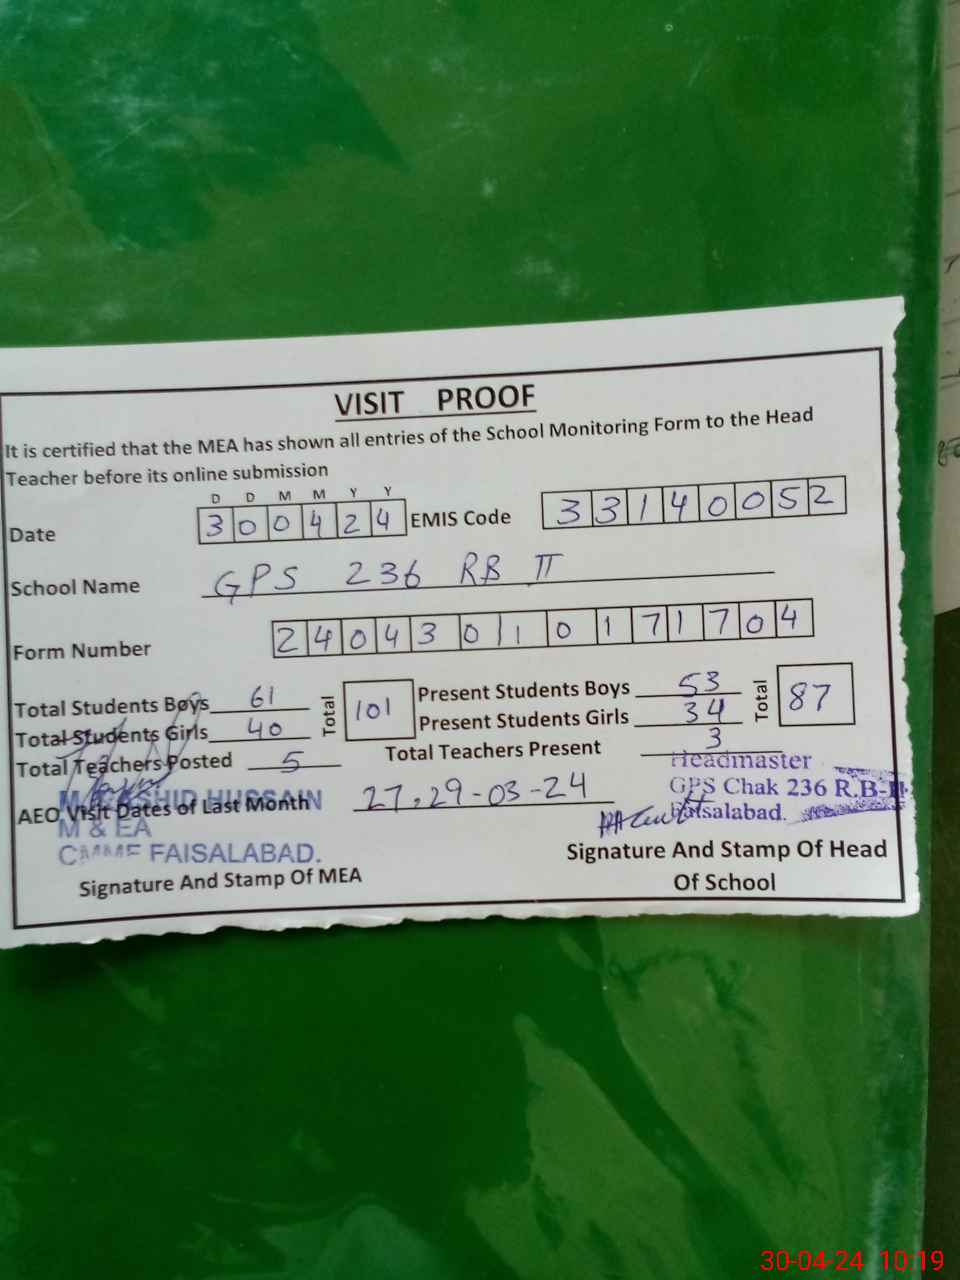 VISIT PROOF
It is certified that the MEA has shown all entries of the School Monitoring Form to the Head
Teacher before its online submission
D D M M Y Y
Date 3 0 0 4 2 4 EMIS Code 3 3 1 4 0 0 5 2
School Name GPS 236 RB II
Form Number 2 4 0 4 3 0 1 1 0 1 7 1 7 0 4
Total Students Boys 61 Total 101 Present Students Boys 53 Total 87
Total Students Girls 40 Present Students Girls 34
Total Teachers Posted 5 Total Teachers Present 3
Headmaster
GPS Chak 236 R.B-II
Faisalabad.
AEO Visit Dates of Last Month 27,29-03-24
HUSSAIN
M & EA
FAISALABAD.
Signature And Stamp Of MEA
Signature And Stamp Of Head
Of School
30-04-24 10:19